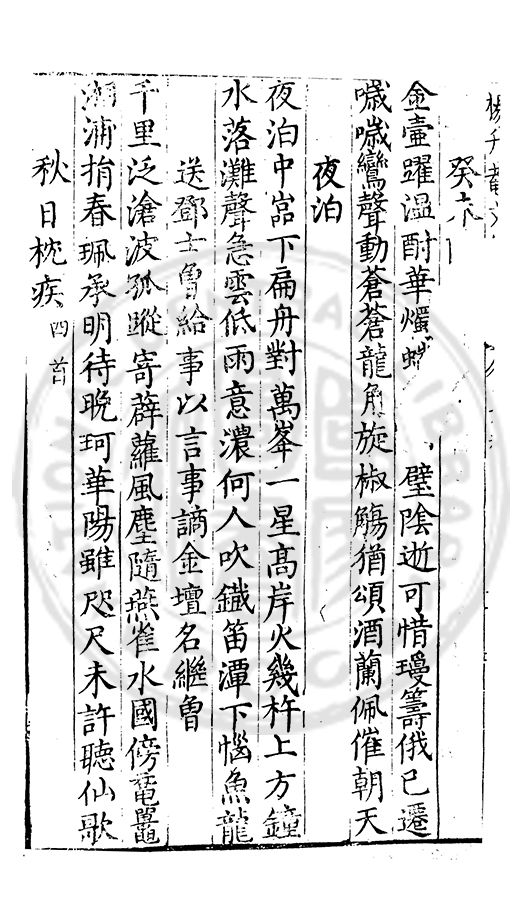 癸
金壷躍温酎華燭 璧陰逝可惜璦籌俄已遷
噦噦鸞聲動蒼蒼龍角旋椒觴猶頌酒蘭佩催朝天
夜泊
夜泊中嵓下扁舟對萬峯一星高岸火幾杵上方鐘
水落灘聲急雲低雨意濃何人吹鐵笛潭下惱魚龍
送鄧士魯給事以言事謫金壇名繼曾
千里泛滄波孤蹤寄薜蘿風塵隨燕雀水國傍黿鼉
湘浦捐春珮承明待晩珂華陽雖咫尺未許聽仙歌
秋日枕疾四首